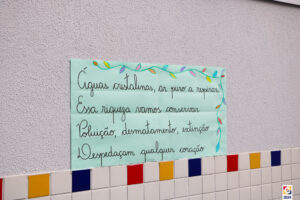 Águas cristalinas, ar puro a respirar
Essa riqueza vamos conservar
Poluição, desmatamento, extinção
Despedaçam qualquer coração